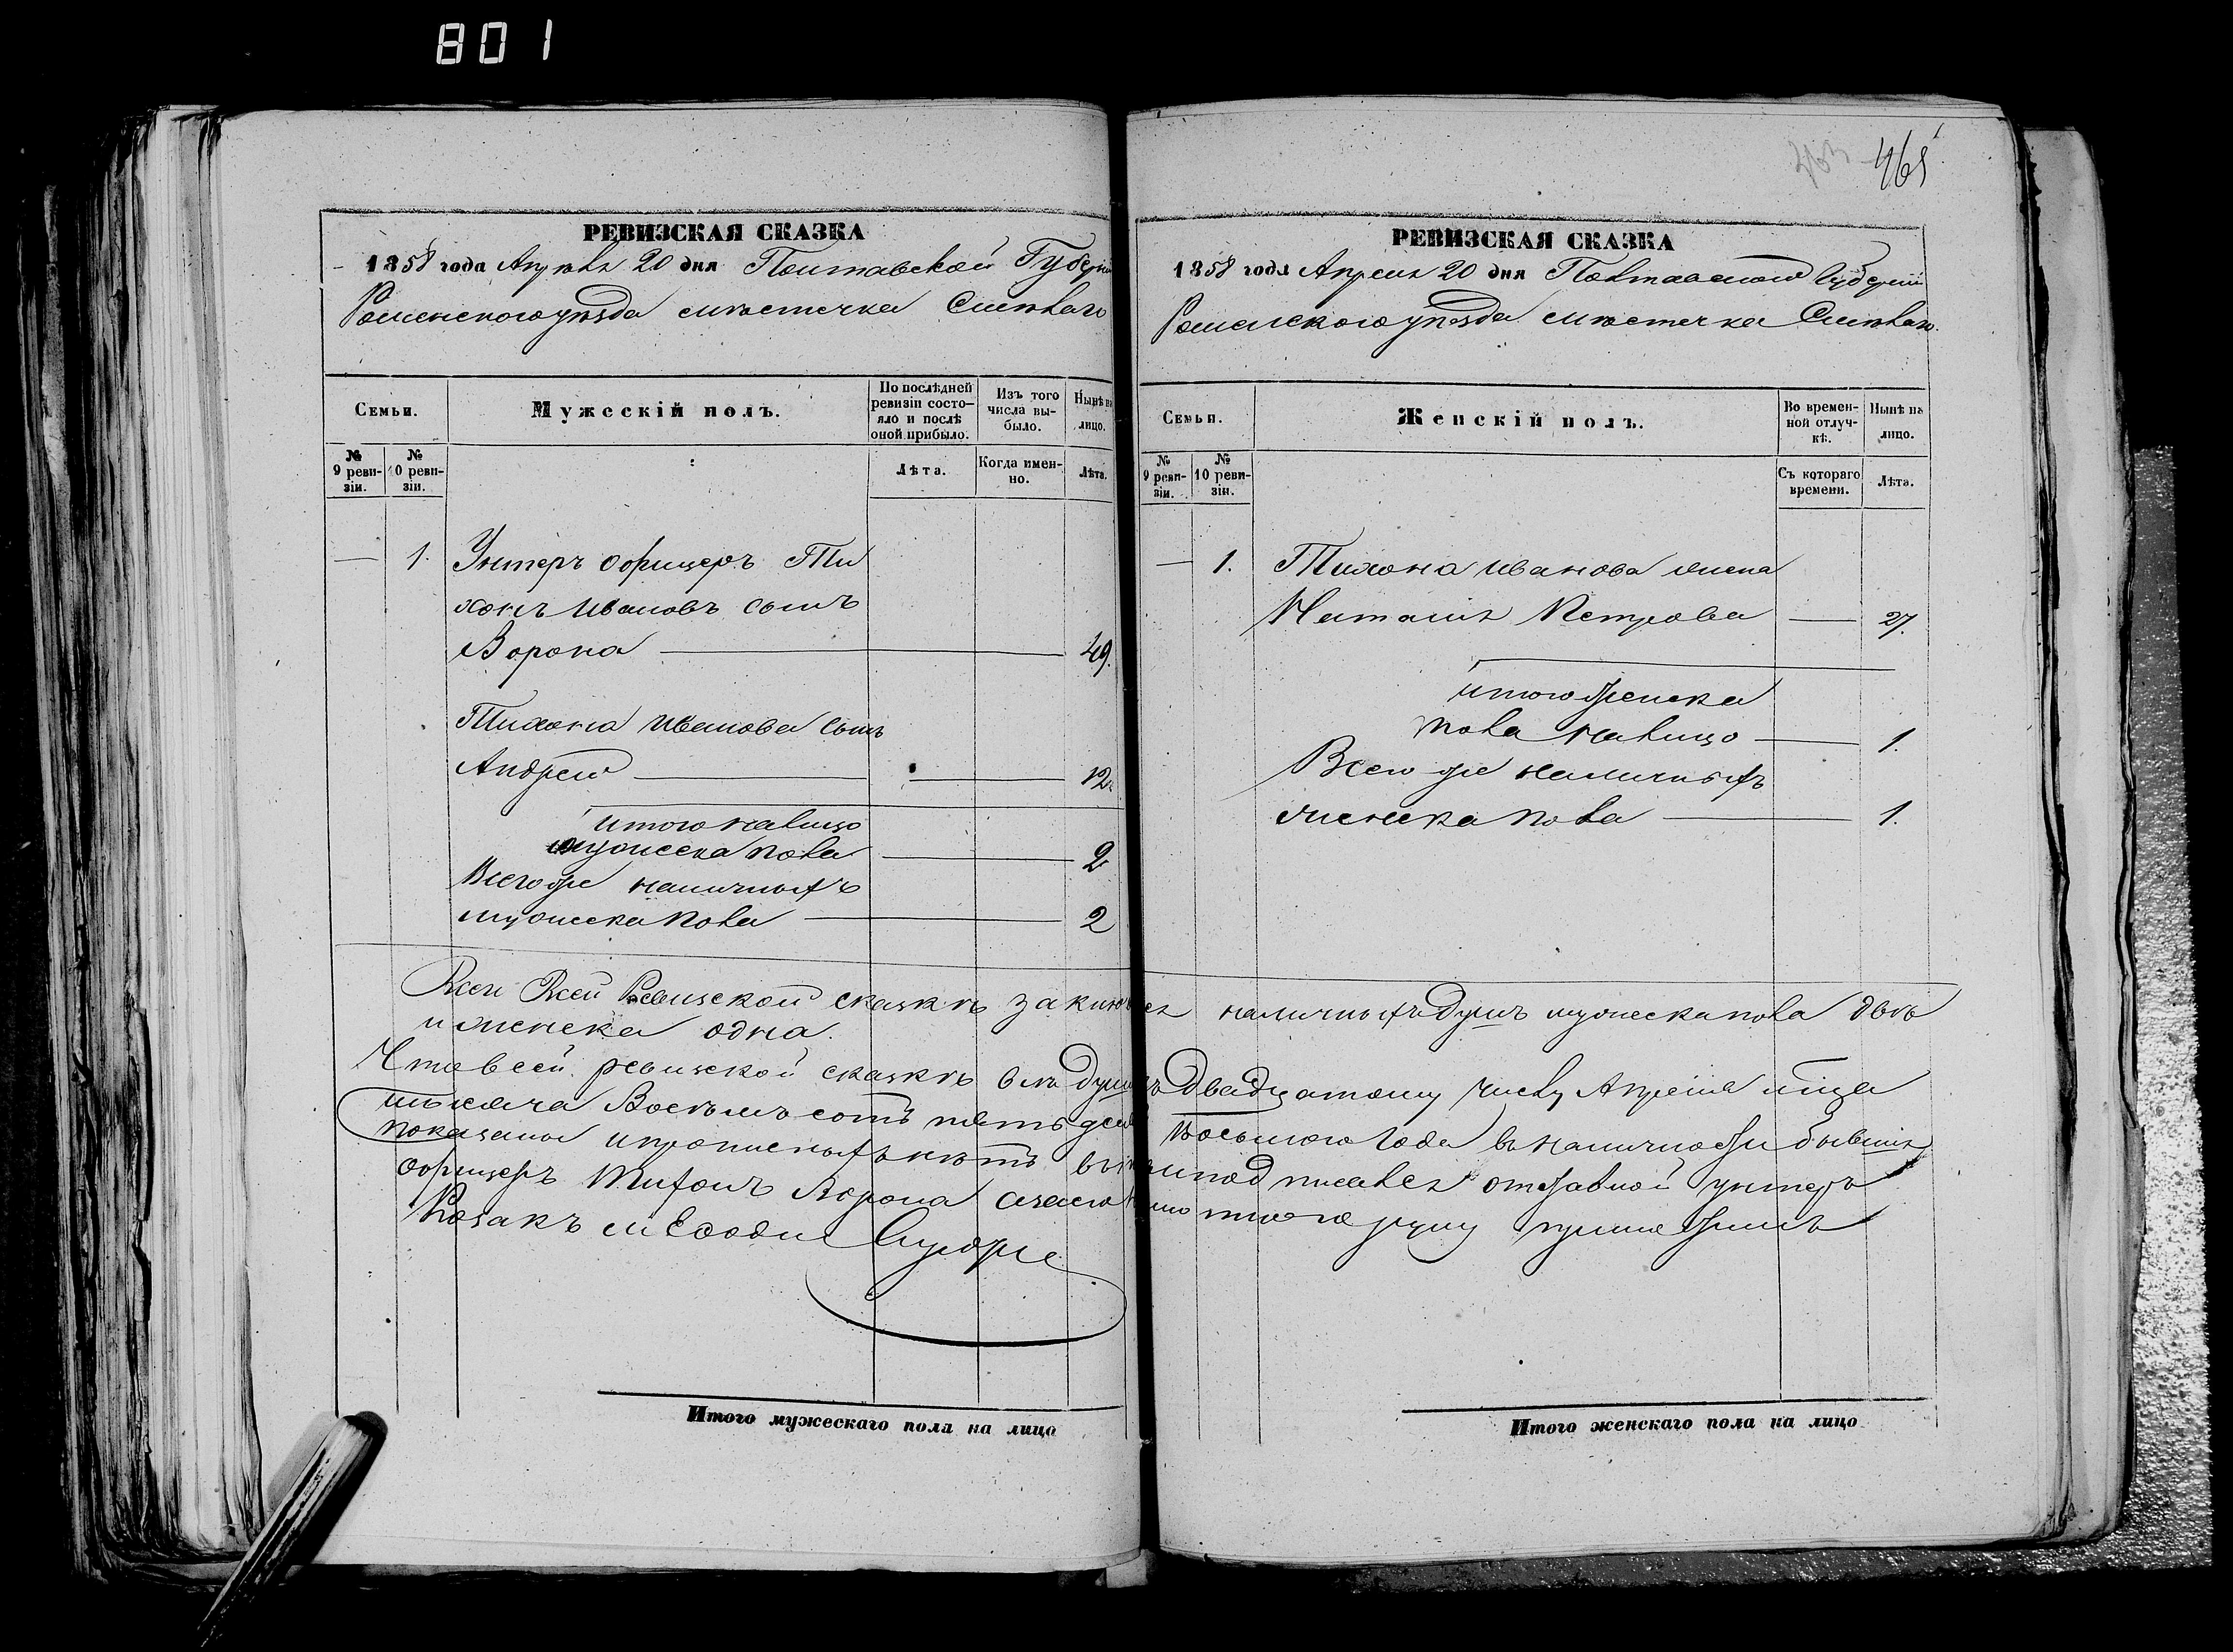 801
465
РЕВИЗСКАЯ СКАЗКА
1858 года Апрѣля 20 дня Полтавской Губерніи
Роменского уѣзда мѣстечка Смѣлаго
Семьи.
Мужескій полъ.
По послѣдней ревизіи состо-
яло и послѣ оной прибыло.
Изъ того числа вы-
было.
Нынѣ на лицо.
№ 9 реви-
зіи.
№ 10 реви-
зіи.
Лѣта.
Когда имен-
но.
Лѣта.
— 1. Унтеръ офицеръ Ти
хонъ Ивановъ сынъ
Ворона — 49.
Тихона Иванова сынъ
Андрей — 12
Итого налицо
мужеска пола — 2
Всего же наличныхъ
мужеска пола — 2
РЕВИЗСКАЯ СКАЗКА
1858 года Апреля 20 дня Полтавской Губерніи
Роменского уѣзда мѣстечка Смѣлаго.
Семьи.
Женскій полъ.
Во времен-
ной отлуч-
кѣ.
Нынѣ на лицо.
№ 9 реви-
зіи.
№ 10 реви-
зіи.
Съ котораго времени.
Лѣта.
— 1. Тихона Иванова жена
Наталія Петрова — 27.
Итого женска
пола налицо — 1.
Всего же наличныхъ
женска пола — 1.
Всей ревизской сказкѣ наличныхъ душъ мужеска пола двѣ
и женска одна.
Что в сей ревизской сказкѣ всѣ души двадцатому числу Апреля
тысяча восемьсотъ пятьдесят восьмого года в наличности бывшія
показаны и прописныхъ нѣтъ подписался отставной унтеръ
офицеръ Тихонъ Ворона а руку приложилъ
Козакъ
Итого мужескаго пола на лицо
Итого женскаго пола на лицо